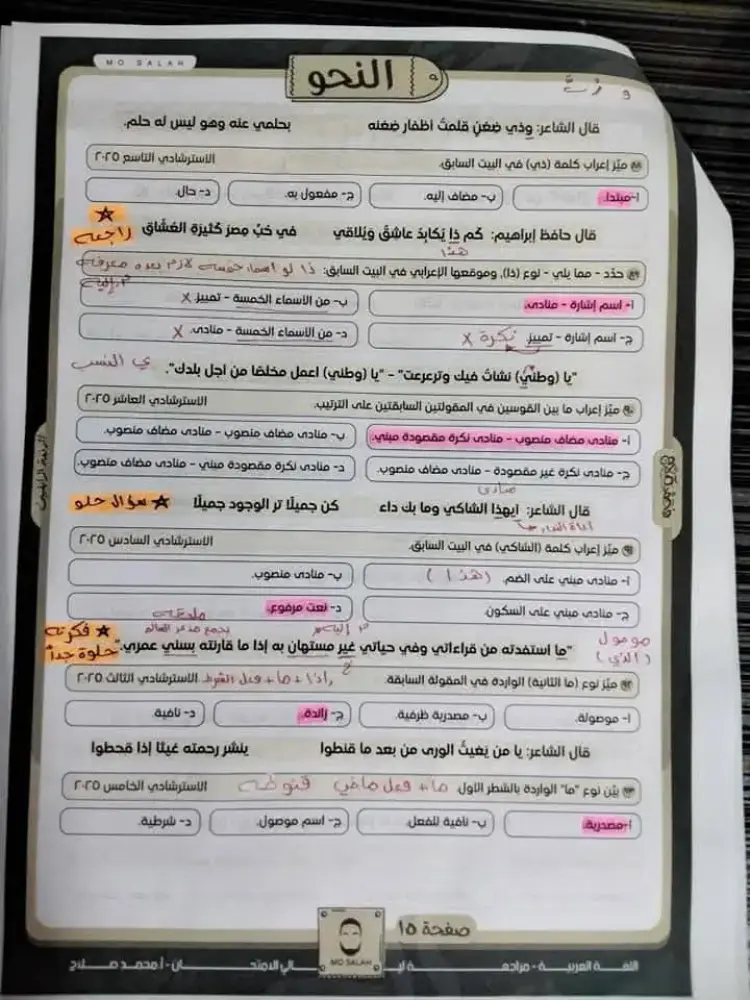 MO SALAH
النحو
و رُبَّ
قال الشاعر: وذي ضِغنٍ قلمتُ أظفار ضِغنه بحلمي عنه وهو ليس له حلم.
ميّز إعراب كلمة (ذي) في البيت السابق. الاسترشادي التاسع ٢٠٢٥
أ- مبتدأ. ب- مضاف إليه. ج- مفعول به. د- حال.
راجعه
قال حافظ إبراهيم: كَم ذا يُكابِدُ عاشِقٌ وَيُلاقي في حُبِّ مِصرَ كَثيرَةِ العُشّاقِ
هذا
حدّد - مما يلي - نوع (ذا)، وموقعها الإعرابي في البيت السابق: ذا لو اسماء خمسه لازم بعده معرفه
م. إليه
أ- اسم إشارة - منادى. ب- من الأسماء الخمسة - تمييز. X
ج- اسم إشارة - تمييز. نكرة X د- من الأسماء الخمسة - منادى. X
"يا (وطني) نشأتُ فيك وترعرعت" - "يا (وطني) اعمل مخلصًا من أجل بلدك". ي النسب
ميّز إعراب ما بين القوسين في المقولتين السابقتين على الترتيب. الاسترشادي العاشر ٢٠٢٥
أ- منادى مضاف منصوب - منادى نكرة مقصودة مبني. ب- منادى مضاف منصوب - منادى مضاف منصوب.
ج- منادى نكرة غير مقصودة - منادى مضاف منصوب. د- منادى نكرة مقصودة مبني - منادى مضاف منصوب.
منادى
قال الشاعر: أيهذا الشاكي وما بك داء كن جميلًا تر الوجود جميلًا سؤال حلو
ميّز إعراب كلمة (الشاكي) في البيت السابق. الاسترشادي السادس ٢٠٢٥
أ- منادى مبني على الضم. (هذا) ب- منادى منصوب.
ج- منادى مبني على السكون. د- نعت مرفوع.
موصول م. إليه بجمع مذكر السالم
(الذي) "ما استفدته من قراءاتي وفي حياتي غير مستهان به إذا ما قارنته بسني عمري." فكرته حلوة جداً
ميّز نوع (ما الثانية) الواردة في المقولة السابقة. إذا + ما + فعل الشرط الاسترشادي الثالث ٢٠٢٥
أ- موصولة. ب- مصدرية ظرفية. ج- زائدة. د- نافية.
قال الشاعر: يا من يَغيثُ الورى من بعد ما قنطوا ينشر رحمته غيثًا إذا قحطوا
بيّن نوع "ما" الواردة بالشطر الأول. ما + فعل ماضي الاسترشادي الخامس ٢٠٢٥
أ- مصدرية. ب- نافية للفعل. ج- اسم موصول. د- شرطية.
صفحة ١٥
MO SALAH
اللغة العربية - مراجعة ليالي الامتحان - أ/محمد صلاح